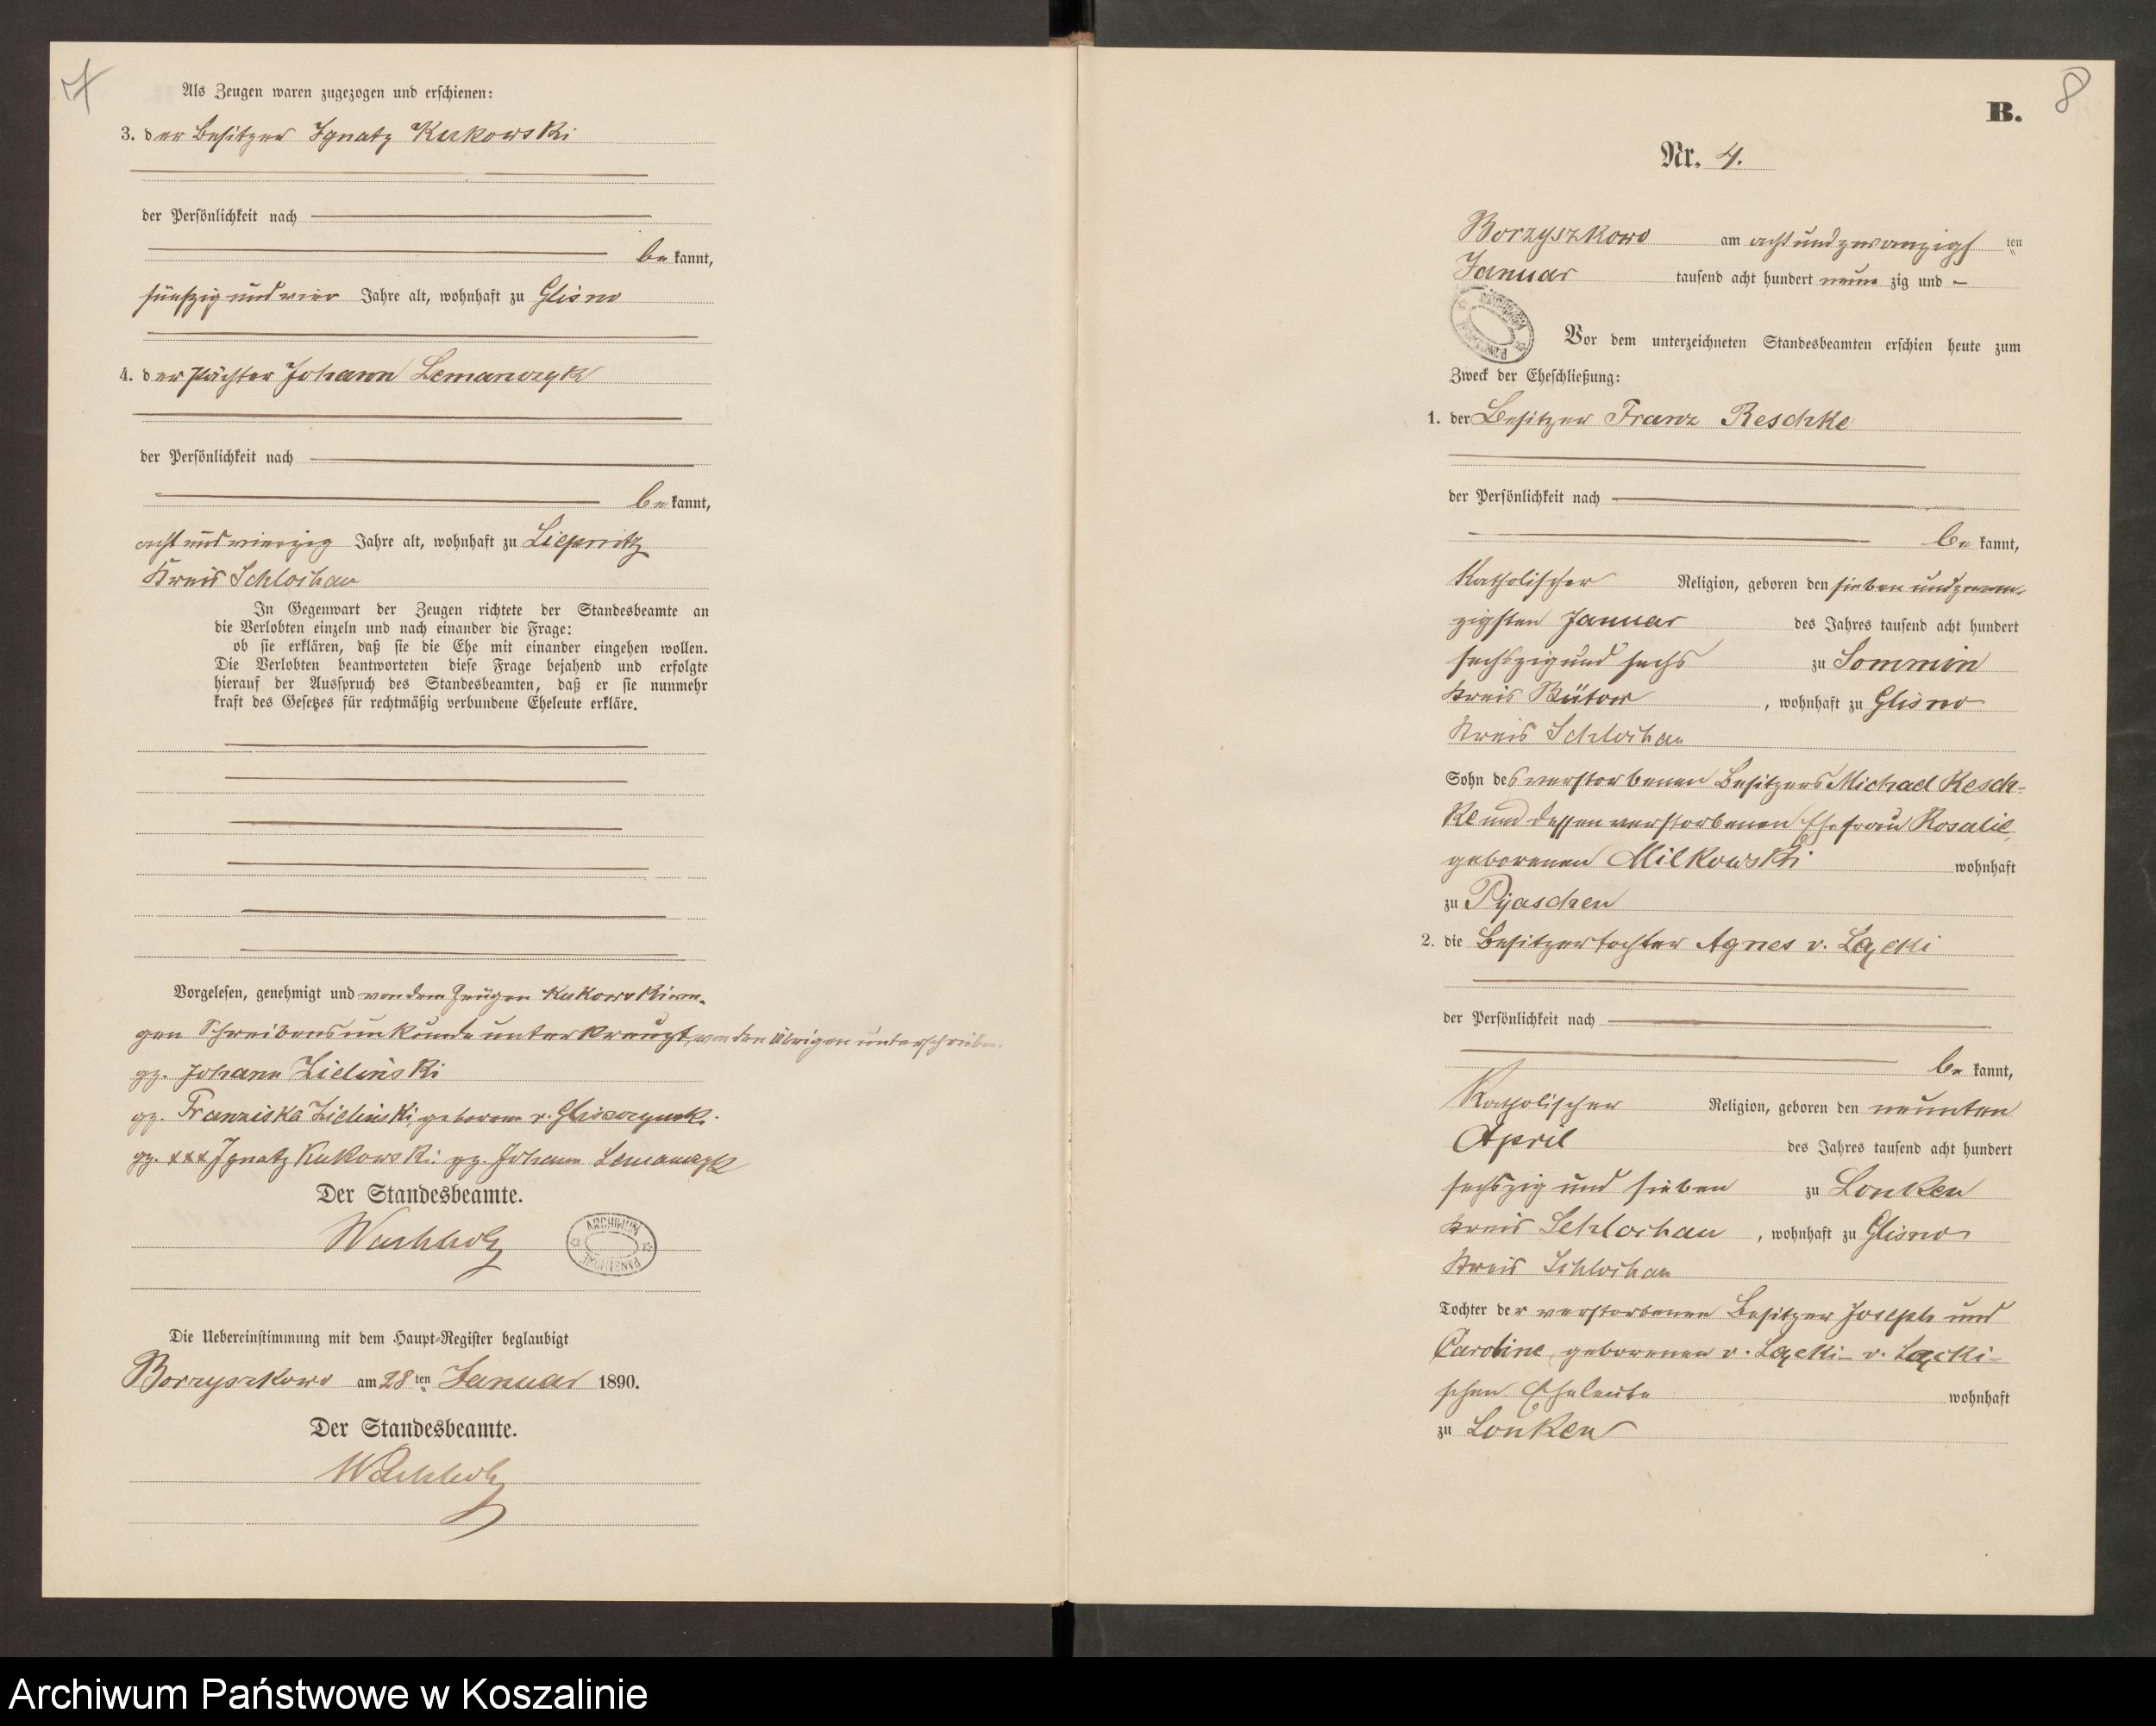 7
Als Zeugen waren zugezogen und erschienen:
3. der Besitzer Ignatz Kukowski
der Persönlichkeit nach
bekannt,
fünfzig und vier Jahre alt, wohnhaft zu Glisno
4. der Pächter Johann Lemanczyk
der Persönlichkeit nach
bekannt,
acht und vierzig Jahre alt, wohnhaft zu Liepnitz
Kreis Schlochau
In Gegenwart der Zeugen richtete der Standesbeamte an
die Verlobten einzeln und nach einander die Frage:
ob sie erklären, daß sie die Ehe mit einander eingehen wollen.
Die Verlobten beantworteten diese Frage bejahend und erfolgte
hierauf der Ausspruch des Standesbeamten, daß er sie nunmehr
kraft des Gesetzes für rechtmäßig verbundene Eheleute erkläre.
Vorgelesen, genehmigt und von dem Zeugen Kukowski we-
gen Schreibensunkunde unterkreuzt, von den Übrigen unterschrieben.
gz. Johann Zielinski
gz. Franziska Zielinski, geborene v.
gz. xxx Ignatz Kukowski gz. Johann Lemanczyk
Der Standesbeamte.
Wachholz
ARCHIWUM PAŃSTWOWE
Die Uebereinstimmung mit dem Haupt-Register beglaubigt
Borzyszkowo am 28 ten Januar 1890.
Der Standesbeamte.
Wachholz
8
B.
Nr. 4.
Borzyszkowo am acht und zwanzigs ten
Januar tausend acht hundert neun zig und —
ARCHIWUM PAŃSTWOWE
Vor dem unterzeichneten Standesbeamten erschien heute zum
Zweck der Eheschließung:
1. der Besitzer Franz Reschke
der Persönlichkeit nach
bekannt,
Katholischer Religion, geboren den sieben und zwan-
zigsten Januar des Jahres tausend acht hundert
sechszig und sechs zu Sommin
Kreis Bütow, wohnhaft zu Glisno
Kreis Schlochau
Sohn des verstorbenen Besitzers Michael Resch-
ke und dessen verstorbenen Ehefrau Rosalie,
geborenen Milkowski wohnhaft
zu Pyaschen
2. die Besitzertochter Agnes v. Łącki
der Persönlichkeit nach
bekannt,
Katholischer Religion, geboren den neunten
April des Jahres tausend acht hundert
sechszig und sieben zu Lonken
Kreis Schlochau, wohnhaft zu Glisno
Kreis Schlochau
Tochter der verstorbenen Besitzer Joseph und
Caroline, geborenen v. Łącki- v. Łącki-
schen Eheleute wohnhaft
zu Lonken
Archiwum Państwowe w Koszalinie